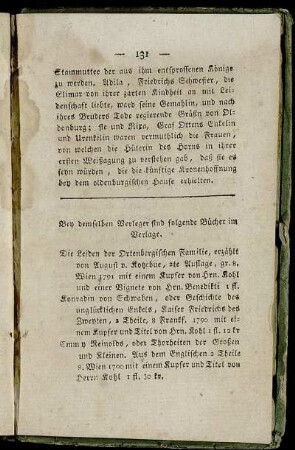 — 131 —
Stammutter der aus ihm entsprossenen Könige
zu werden. Adila, Friedrichs Schwester, die
Elimar von ihrer zarten Kindheit an mit Lei-
denschaft liebte, ward seine Gemahlin, und nach
ihres Bruders Tode regierende Gräfin von Ol-
denburg; sie und Rixa, Graf Ottens Enkelin
und Urenkelin waren vermuthlich die Frauen,
von welchen die Hüterin des Horns in ihrer
ersten Weißagung zu verstehen gab, daß sie es
seyn würden, die die künftige Kronenhoffnung
bey dem oldenburgischen Hause erhielten.
Bey demselben Verleger sind folgende Bücher im
Verlage.
Die Leiden der Ortenbergischen Familie, erzählt
von August v. Kotzebue, 2te Auflage, gr. 8.
Wien 1791 mit einem Kupfer von Hrn. Kohl
und einer Vignete von Hrn. Benedikti 1 fl.
Konradin von Schwaben, oder Geschichte des
unglücklichen Enkels, Kaiser Friedrichs des
Zweyten, 2 Theile, 8 Frankf. 1790 mit ei-
nem Kupfer und Titel von Hrn. Kohl 1 fl. 12 kr
Emmy Reinolds, oder Thorheiten der Großen
und Kleinen. Aus dem Englischen 2 Theile
8. Wien 1790 mit einem Kupfer und Titel von
Herrn Kohl 1 fl. 30 kr.